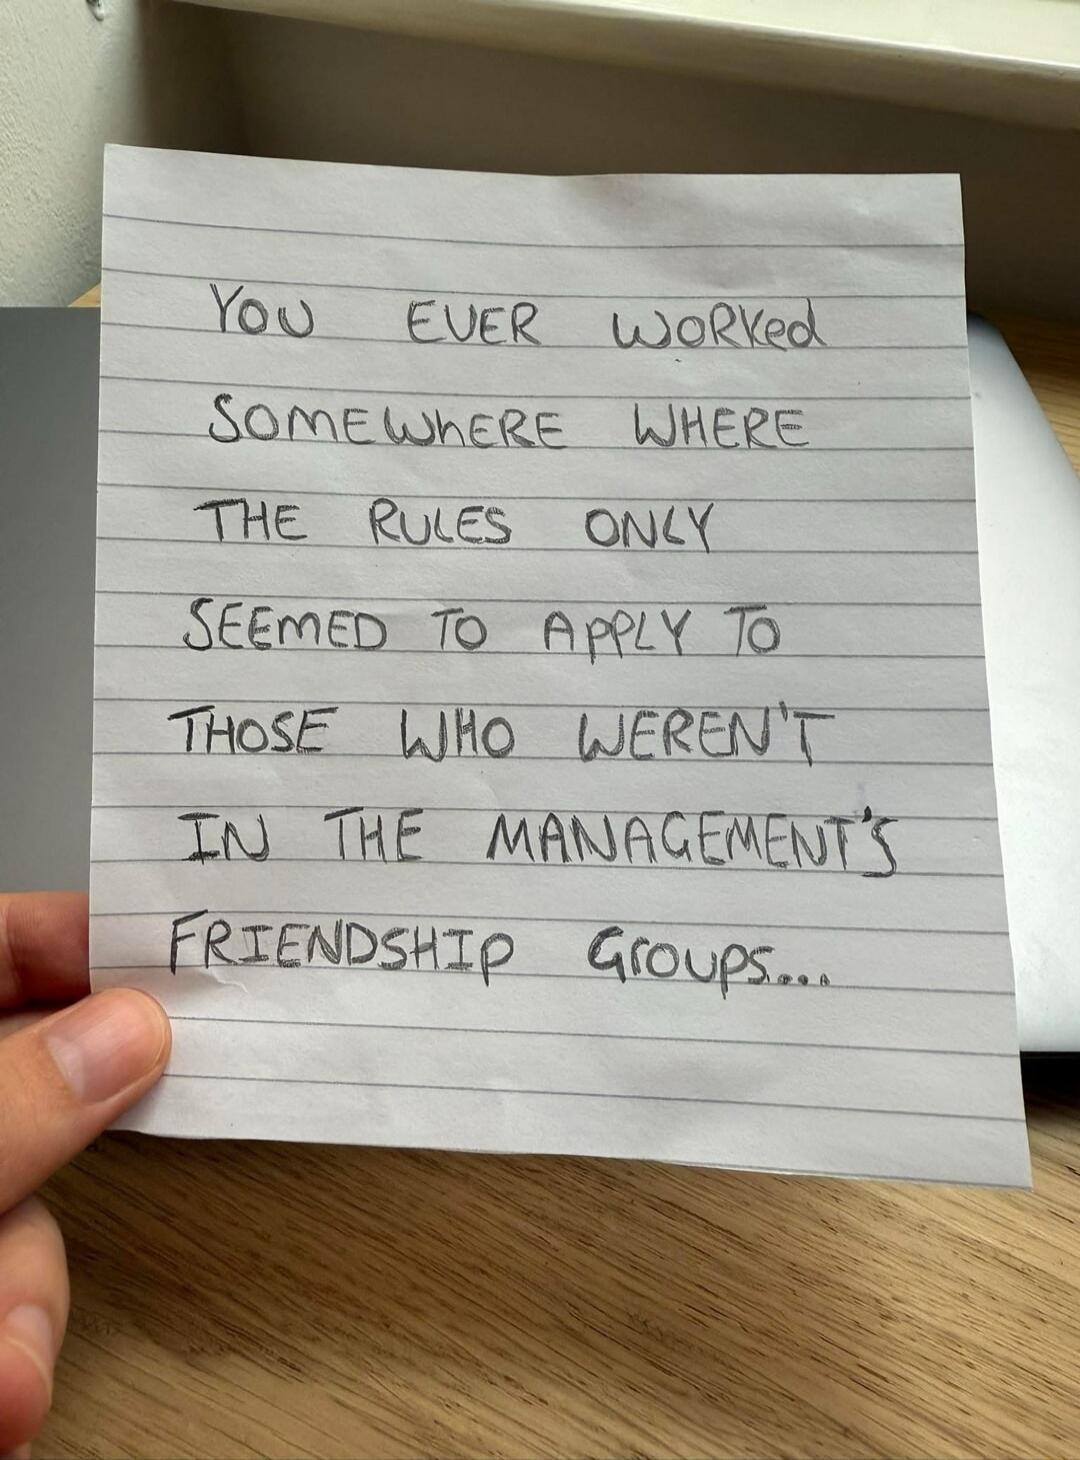 YOU EVER WORKed
SOMEWhERE WHERE
THE RULES ONLY
SEEMED TO APPLY TO
THOSE WHO WEREN'T
IN THE MANAGEMENT'S
FRIENDSHIP Groups...